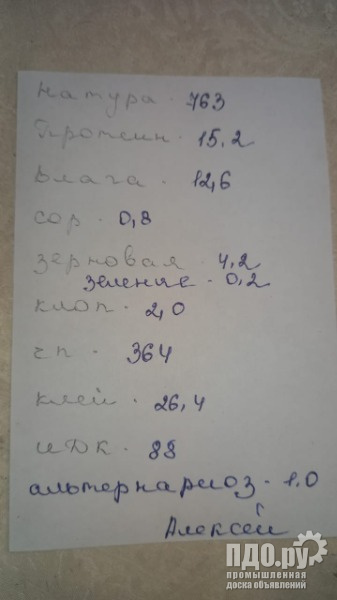 натура - 763
Протеин - 15,2
Влага - 12,6
сор - 0,8
зерновая - 4,2
зеление - 0,2
клоп - 2,0
чп - 364
клей - 26,4
идк - 88
альтернариоз - 1.0
Алексей
ПДО.ру
промышленная
доска объявлений